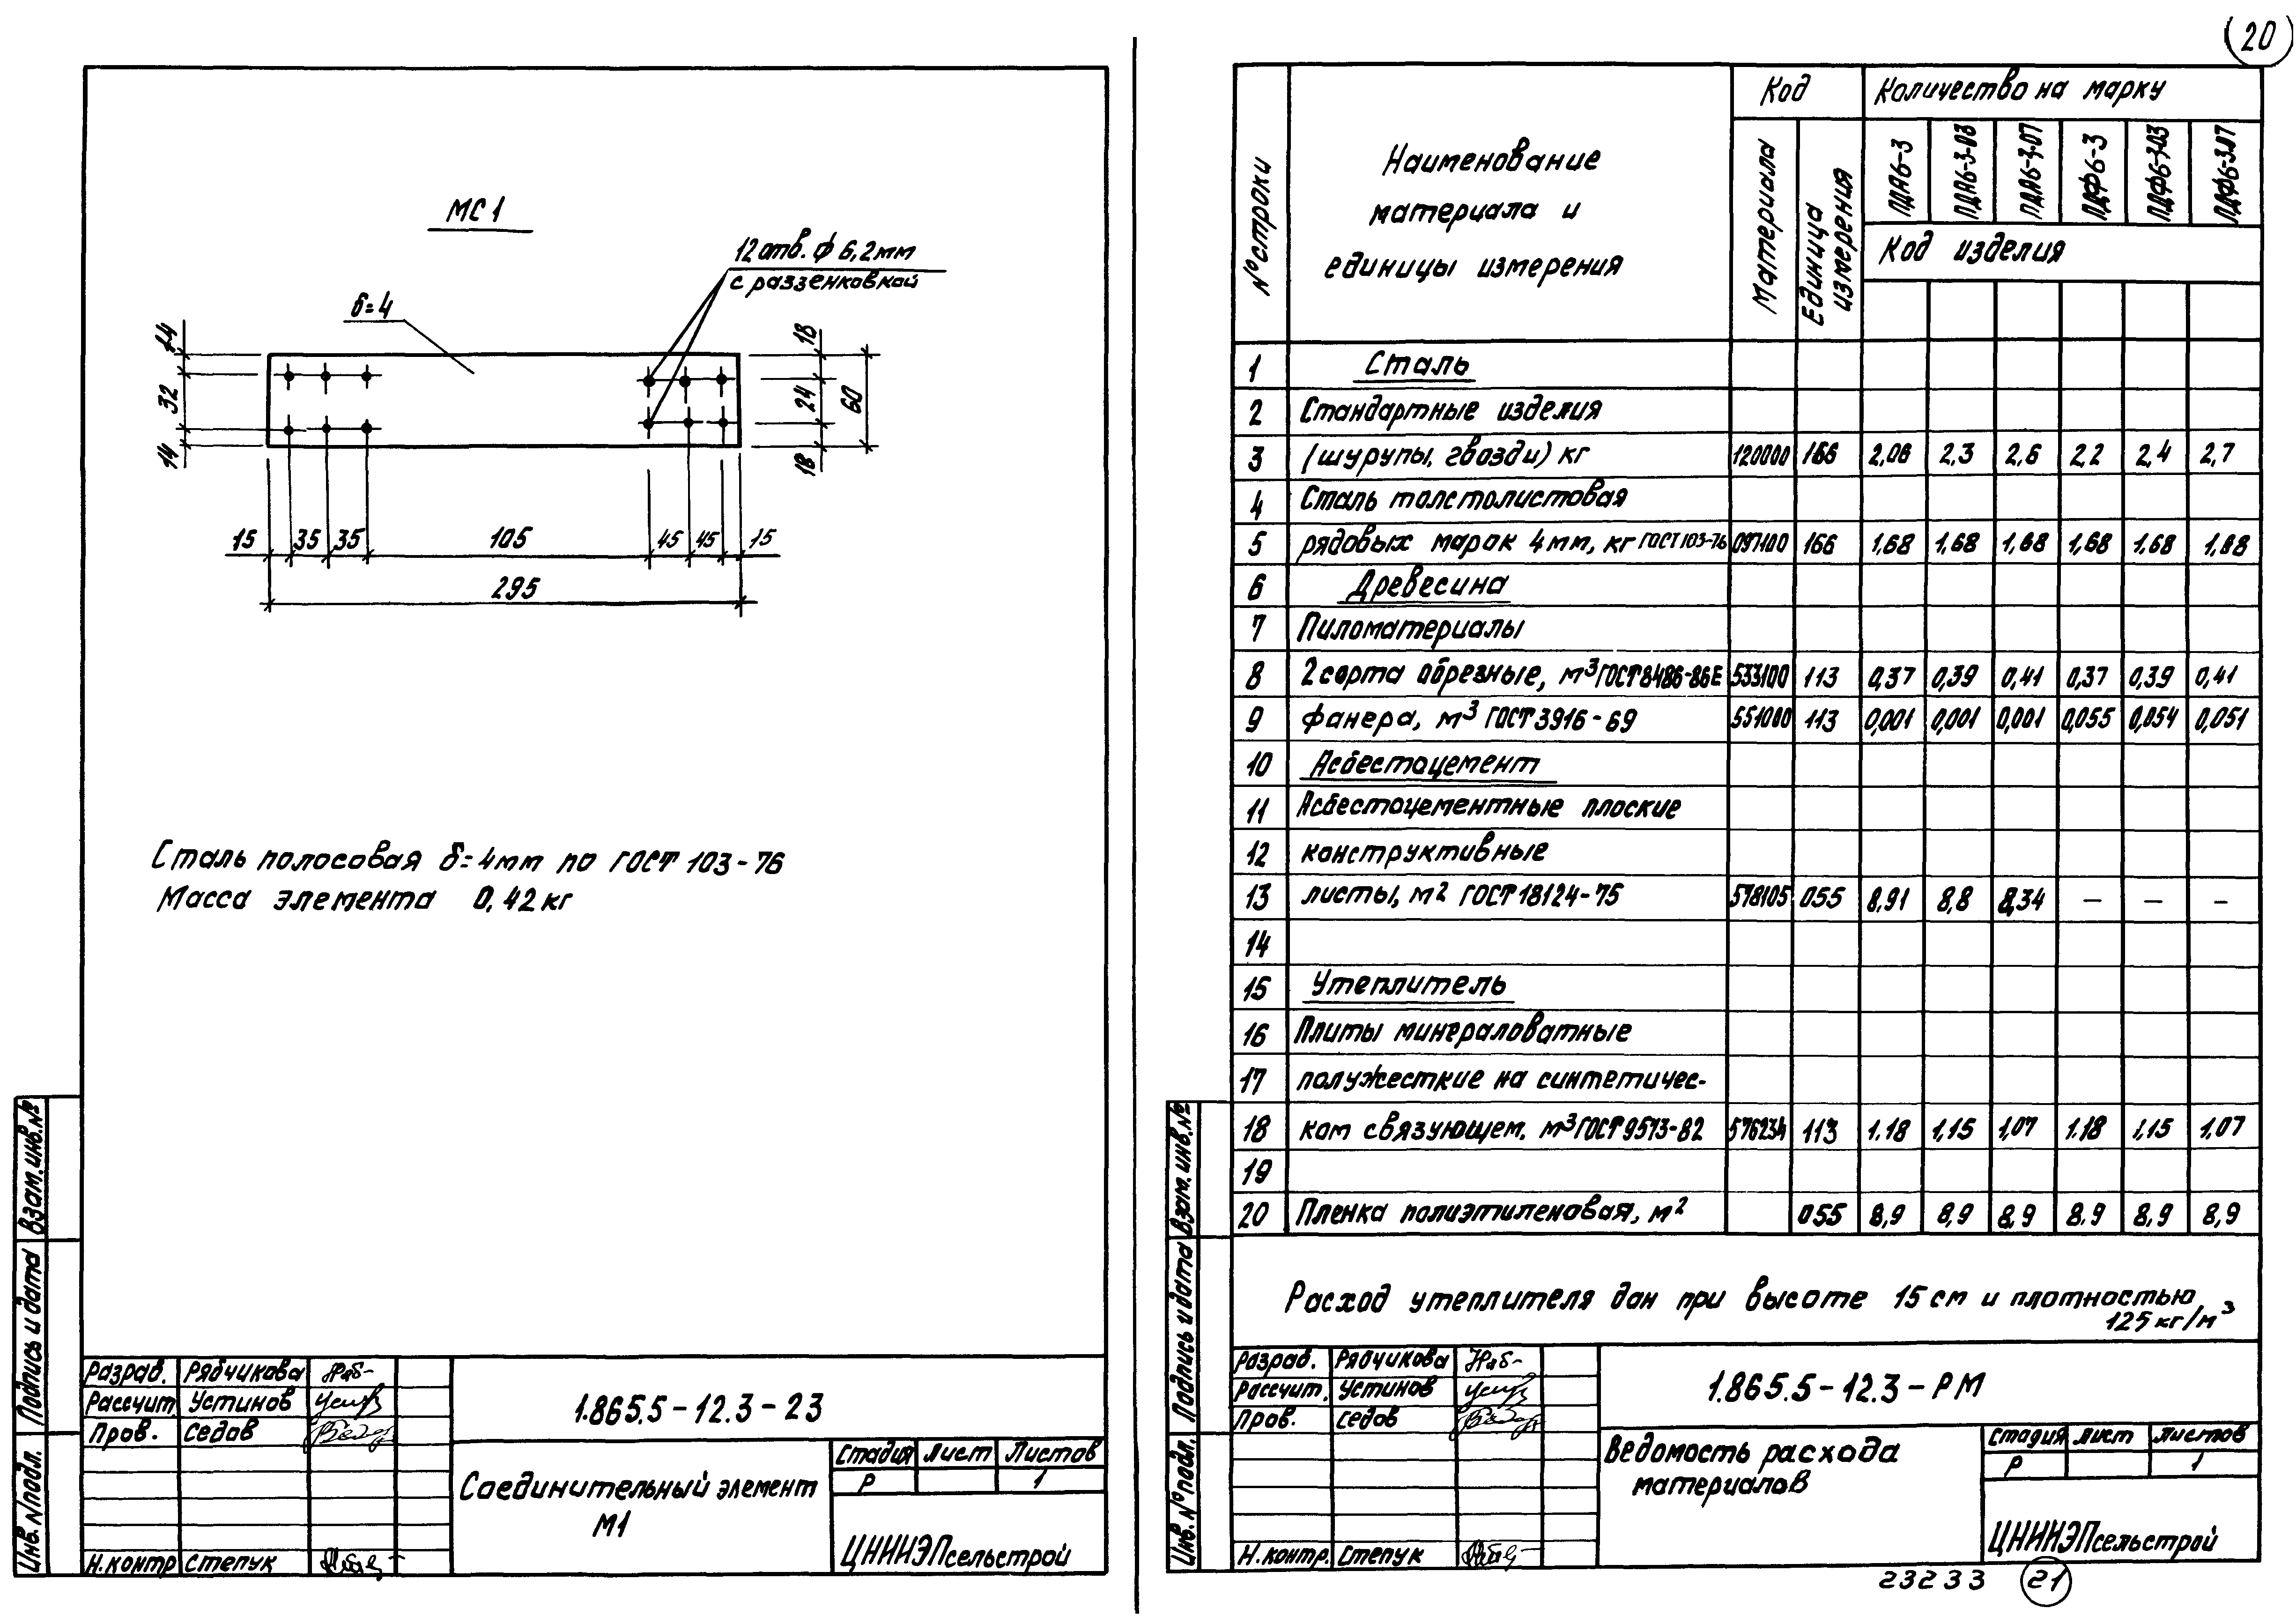 20
МС1
12 отв. ϕ 6,2мм
с раззенковкой
δ=4
14
32
14
18
24
18
60
15 35 35 105 45 45 15
295
Сталь полосовая δ=4мм по ГОСТ 103-76
Масса элемента 0,42кг
Взам.инв.№
Подпись и дата
Инв.№подл.
Разраб. Рябчикова
Рассчит. Устинов
Пров. Седов
Н.контр Степук
1.865.5-12.3-23
Соединительный элемент
М1
Стадия Лист Листов
Р 1
ЦНИИЭПсельстрой
№ строки
Наименование
материала и
единицы измерения
Код
Материала
Единица
измерения
Количество на марку
ПДА6-3 ПДА6-3-03 ПДА6-3-07 ПДФ6-3 ПДФ6-3-03 ПДФ6-3-07
Код изделия
1 Сталь
2 Стандартные изделия
3 (шурупы, гвозди) кг 120000 166 2,06 2,3 2,6 2,2 2,4 2,7
4 Сталь толстолистовая
5 рядовых марок 4мм, кг ГОСТ103-76 097100 166 1,68 1,68 1,68 1,68 1,68 1,68
6 Древесина
7 Пиломатериалы
8 2сорта обрезные, м³ ГОСТ8486-86Е 533100 113 0,37 0,39 0,41 0,37 0,39 0,41
9 фанера, м³ ГОСТ3916-69 551000 113 0,001 0,001 0,001 0,055 0,054 0,051
10 Асбестоцемент
11 Асбестоцементные плоские
12 конструктивные
13 листы, м² ГОСТ18124-75 578105 055 8,91 8,8 8,34 – – –
14
15 Утеплитель
16 Плиты минераловатные
17 полужесткие на синтетичес-
18 ком связующем, м³ ГОСТ9573-82 576234 113 1.18 1,15 1,07 1.18 1,15 1.07
19
20 Пленка полиэтиленовая, м² 055 8,9 8,9 8,9 8,9 8,9 8,9
Расход утеплителя дан при высоте 15см и плотностью
125кг/м³
Взам.инв.№
Подпись и дата
Инв.№подл.
Разраб. Рябчикова
Рассчит. Устинов
Пров. Седов
Н.контр. Степук
1.865.5-12.3-РМ
Ведомость расхода
материалов
Стадия Лист Листов
Р 1
ЦНИИЭПсельстрой
23233 21